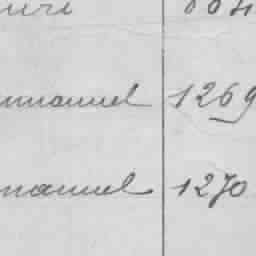 mmanuel 1269
manuel 1270